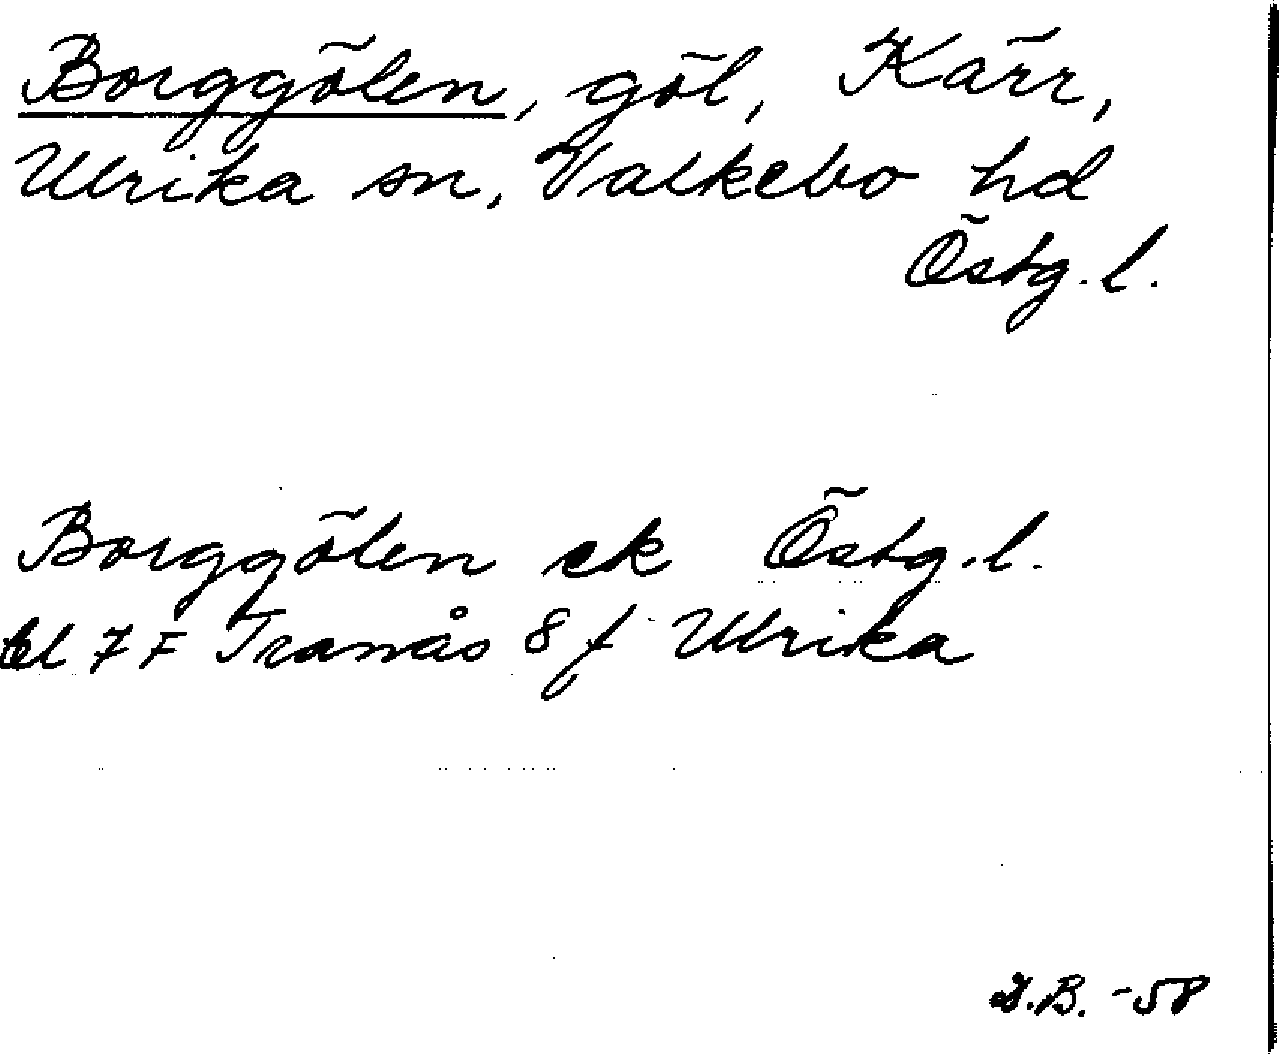 Borggölen, göl, Kärr,
Ulrika sn, Valkebo hd
Östg. l.
Borggölen ek Östg. l.
bl 7 F Tranås 8 f Ulrika
I.B. -58